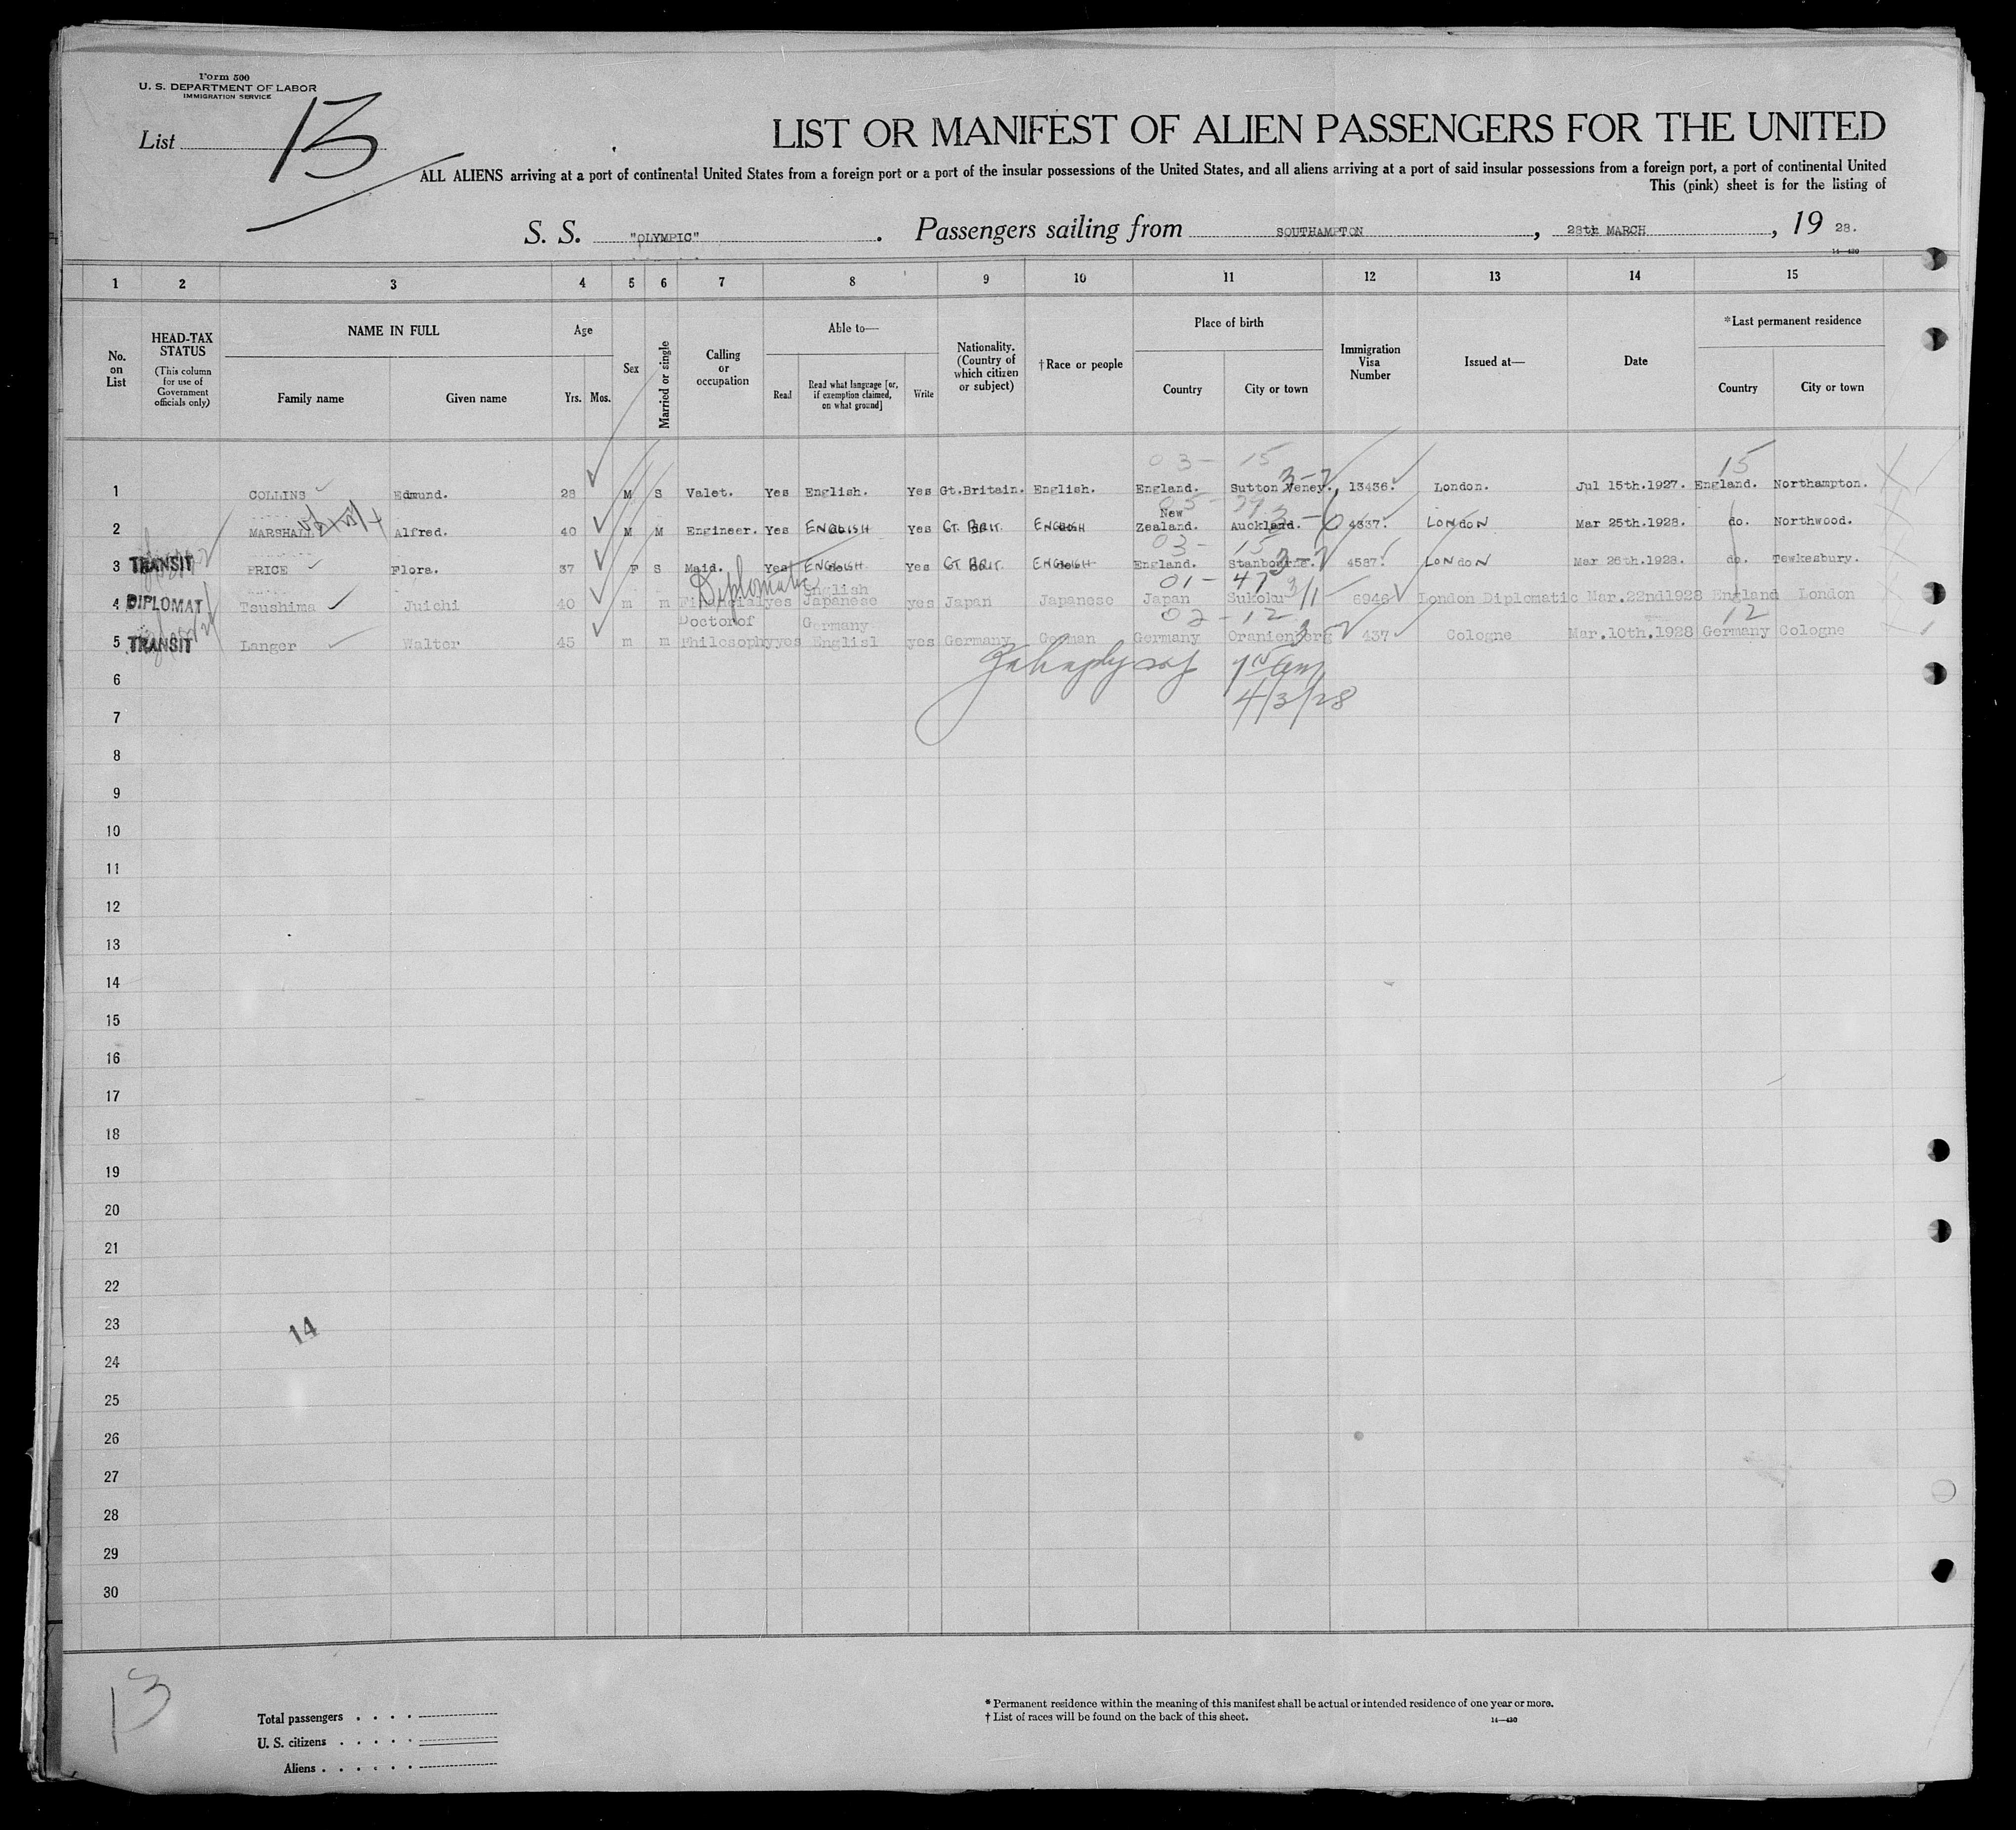 Form 500
U. S. DEPARTMENT OF LABOR
IMMIGRATION SERVICE
List 13
LIST OR MANIFEST OF ALIEN PASSENGERS FOR THE UNITED
ALL ALIENS arriving at a port of continental United States from a foreign port or a port of the insular possessions of the United States, and all aliens arriving at a port of said insular possessions from a foreign port, a port of continental United
This (pink) sheet is for the listing of
S. S. "OLYMPIC". Passengers sailing from SOUTHAMPTON, 28th MARCH, 19 28.
14-430
1 2 3 4 5 6 7 8 9 10 11 12 13 14 15
No. on List
HEAD-TAX STATUS (This column for use of Government officials only)
NAME IN FULL
Family name Given name
Age
Yrs. Mos.
Sex
Married or single
Calling or occupation
Able to—
Read
Read what language [or, if exemption claimed, on what ground]
Write
Nationality. (Country of which citizen or subject)
†Race or people
Place of birth
Country City or town
Immigration Visa Number
Issued at—
Date
*Last permanent residence
Country City or town
03- 15 15
1 COLLINS Edmund. 28 M S Valet. Yes English. Yes Gt.Britain. English. England. Sutton Veney. 13436. London. Jul 15th.1927. England. Northampton.
2 MARSHALL Alfred. 40 M M Engineer. Yes ENGLISH Yes GT BRIT. ENGLISH New Zealand. Auckland. 4337. LONDON Mar 25th.1928. do. Northwood.
03- 15
3 TRANSIT PRICE Flora. 37 F S Maid. Yes ENGLISH Yes GT BRIT. ENGLISH England. Stanbourne. 4587. LONDON Mar 26th.1928. do. Tewkesbury.
Diplomatic 01- 47
4 DIPLOMAT Tsushima Juichi 40 m m Financial yes English Japanese yes Japan Japanese Japan Sukoku 3/1 6946 London Diplomatic Mar.22nd1928 England London
02-12 12
5 TRANSIT Langer Walter 45 m m Doctorof Philosophy yes Germany Englisl yes Germany German Germany Oranienberg 437 Cologne Mar.10th.1928 Germany Cologne
6
4/3/28
7
8
9
10
11
12
13
14
15
16
17
18
19
20
21
22
23
14
24
25
26
27
28
29
30
13
Total passengers . . . .
U. S. citizens . . . . .
Aliens . . . . . .
* Permanent residence within the meaning of this manifest shall be actual or intended residence of one year or more.
† List of races will be found on the back of this sheet.
14-430